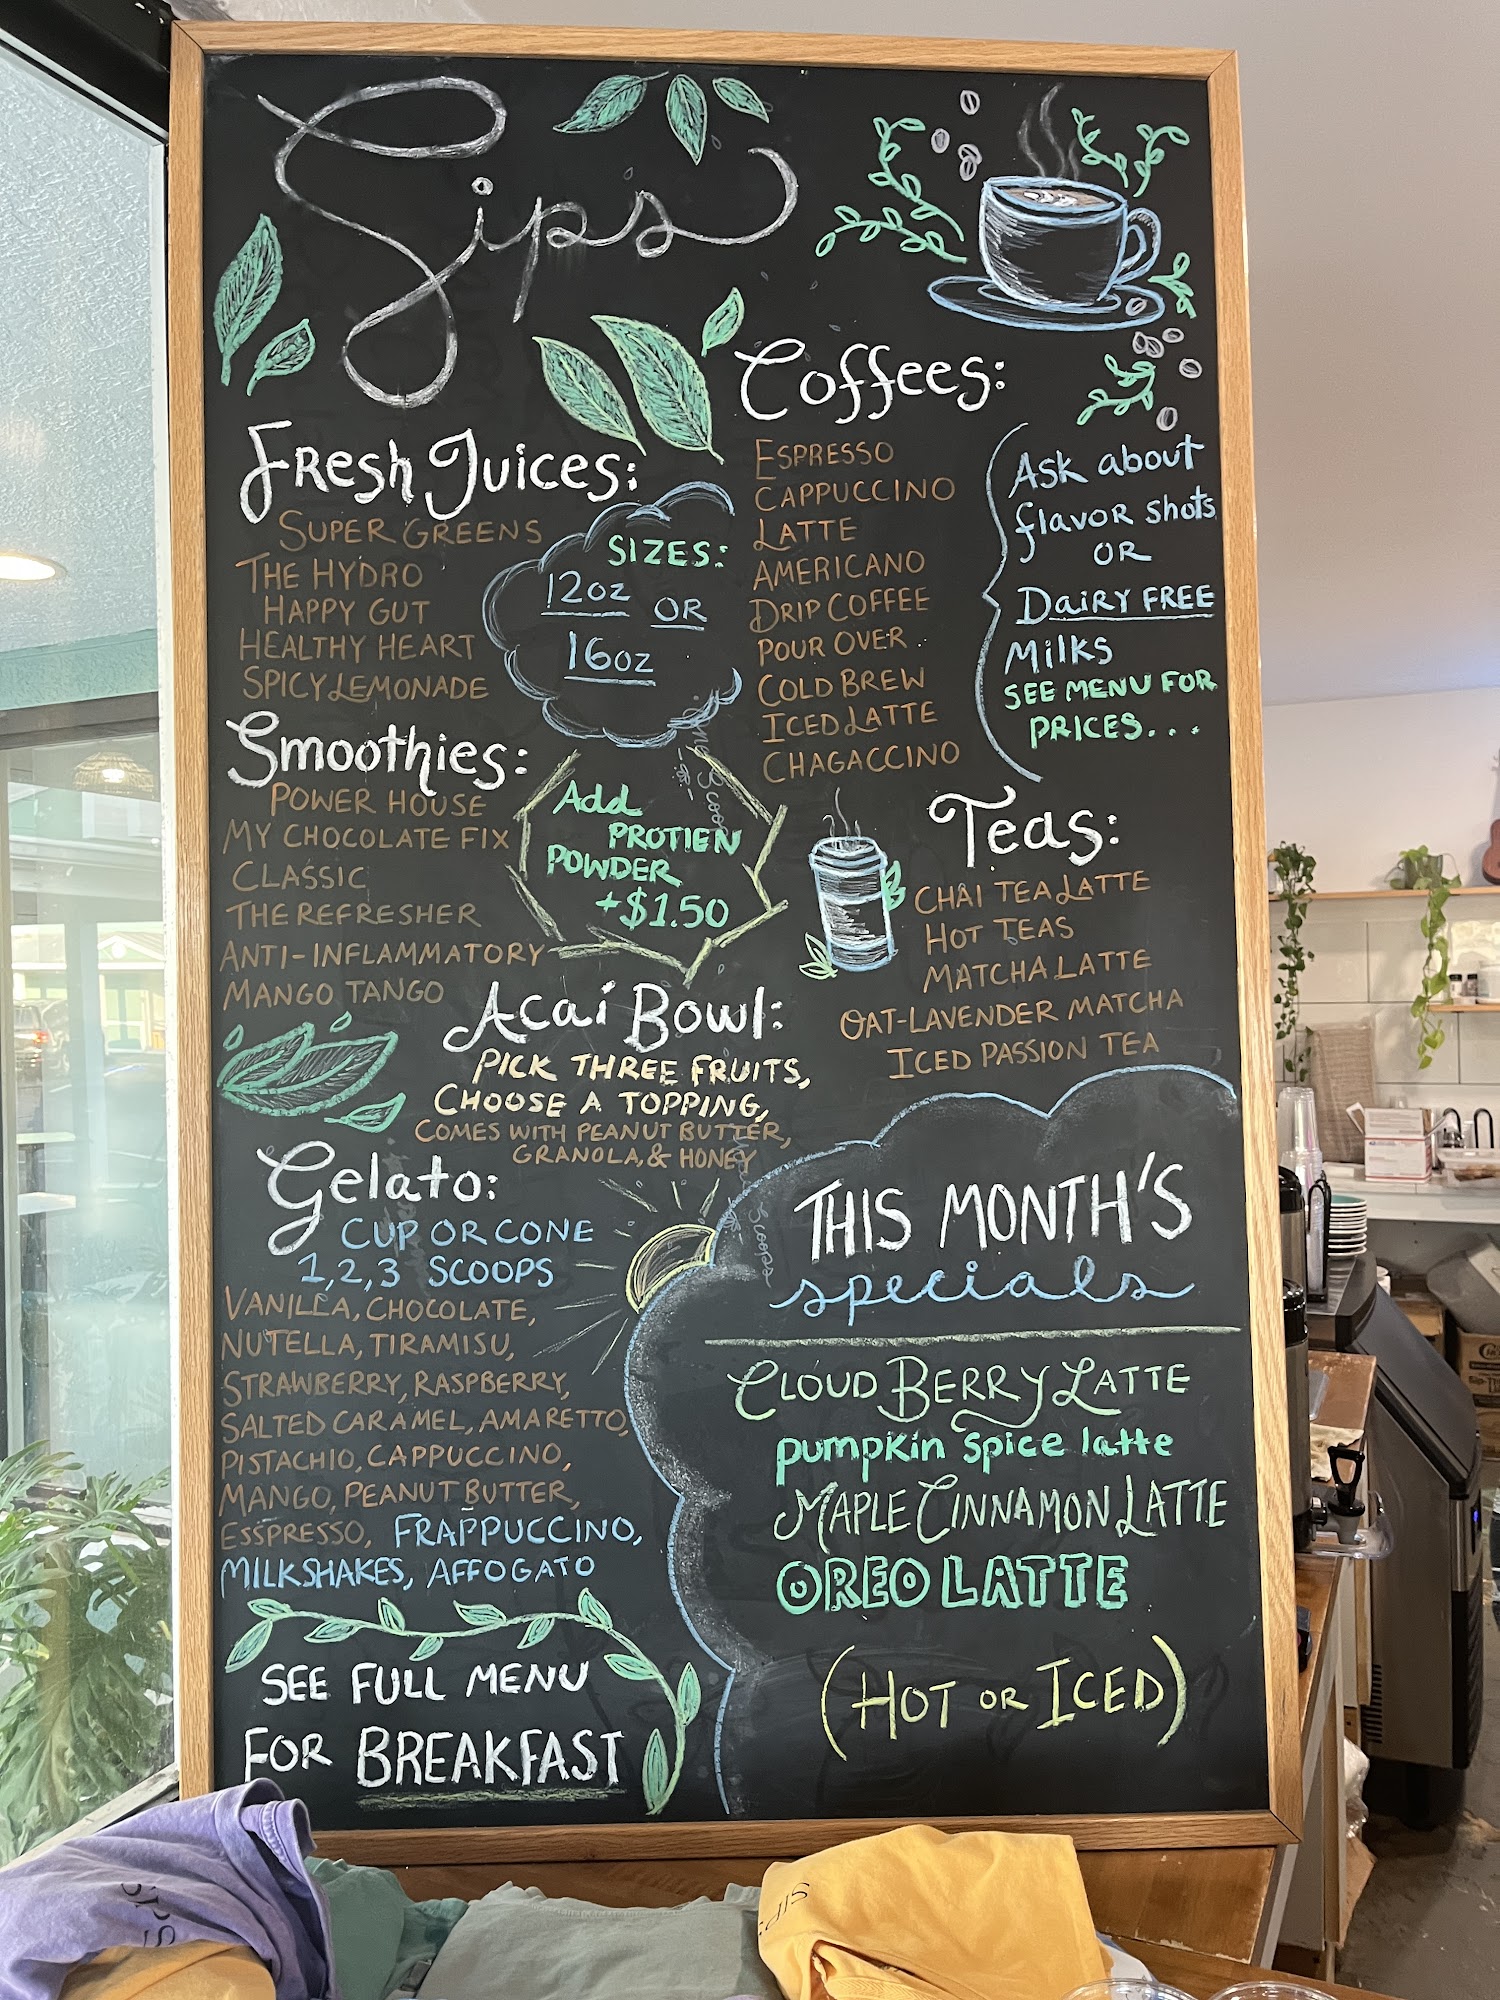 Sip's
Fresh Juices:
SUPER GREENS
THE HYDRO
HAPPY GUT
HEALTHY HEART
SPICY LEMONADE
SIZES:
12oz OR
16oz
Smoothies:
POWER HOUSE
MY CHOCOLATE FIX
CLASSIC
THE REFRESHER
ANTI-INFLAMMATORY
MANGO TANGO
Add
PROTIEN
POWDER
+$1.50
Acai Bowl:
PICK THREE FRUITS,
CHOOSE A TOPPING,
COMES WITH PEANUT BUTTER,
GRANOLA, & HONEY
Gelato:
CUP OR CONE
1,2,3 SCOOPS
VANILLA, CHOCOLATE,
NUTELLA, TIRAMISU,
STRAWBERRY, RASPBERRY,
SALTED CARAMEL, AMARETTO,
PISTACHIO, CAPPUCCINO,
MANGO, PEANUT BUTTER,
ESSPRESSO, FRAPPUCCINO,
MILKSHAKES, AFFOGATO
SEE FULL MENU
FOR BREAKFAST
Coffees:
ESPRESSO
CAPPUCCINO
LATTE
AMERICANO
DRIP COFFEE
POUR OVER
COLD BREW
ICED LATTE
CHAGACCINO
Ask about
flavor shots
OR
DAiRY FREE
Milks
SEE MENU FOR
PRICES...
Teas:
CHAI TEA LATTE
HOT TEAS
MATCHA LATTE
OAT-LAVENDER MATCHA
ICED PASSION TEA
THIS MONTH'S
specials
CLOUD BERRY LATTE
pumpkin spice latte
MAPLE CINNAMON LATTE
OREO LATTE
(HOT OR ICED)
SIPS
SIP'